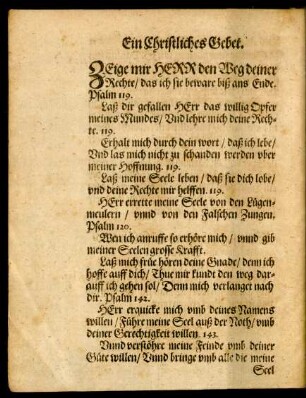 Ein Christliches Gebet.
ZEige mir HERR den Weg deiner
Rechte/ das ich sie beware biß ans Ende.
Psalm 119.
Laß dir gefallen HErr das willig Opfer
meines Mundes/ Vnd lehre mich deine Rech-
te. 119.
Erhalt mich durch dein wort/ daß ich lebe/
Vnd las mich nicht zu schanden werden vber
meiner Hoffnung. 119.
Laß meine Seele leben/ daß sie dich lobe/
vnd deine Rechte mir helffen. 119.
HErr errette meine Seele von den Lügen-
meulern/ vnnd von den Falschen Zungen.
Psalm 120.
Wen ich anruffe so erhöre mich/ vnnd gib
meiner Seelen grosse Krafft.
Laß mich früe hören deine Gnade/ denn ich
hoffe auff dich/ Thue mir kundt den weg dar-
auff ich gehen sol/ Denn mich verlanget nach
dir. Psalm 142.
HErr erquicke mich vmb deines Namens
willen/ Führe meine Seel auß der Noth/ vmb
deiner Gerechtigkeit willen. 143.
Vnnd verstöhre meine Feinde vmb deiner
Güte willen/ Vnnd bringe vmb alle die meine
Seel